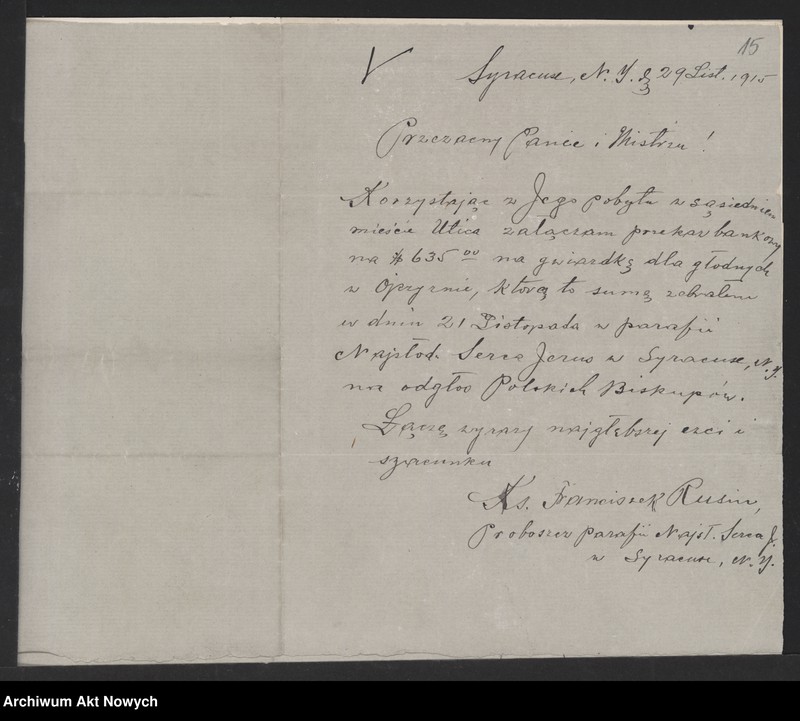 15
V
Syracuse, N. Y. d. 29 List. 1915
Przezacny Panie i Mistrzu!
Korzystając z Jego pobytu w sąsiedniem
mieście Utica załączam przekaz bankowy
na $ 635 00 na gwiazdkę dla głodnych
w Ojczyznie, którą to sumę zebrałem
w dniu 21 Listopada w parafii
Najsłod. Serca Jezus w Syracuse, N. Y.
na odgłos Polskich Biskupów.
Łączę wyrazy najgłębszej czci i
szacunku
Ks. Franciszek Rusin,
Proboszcz parafii Najsł. Serca J.
w Syracuse, N. Y.
Archiwum Akt Nowych